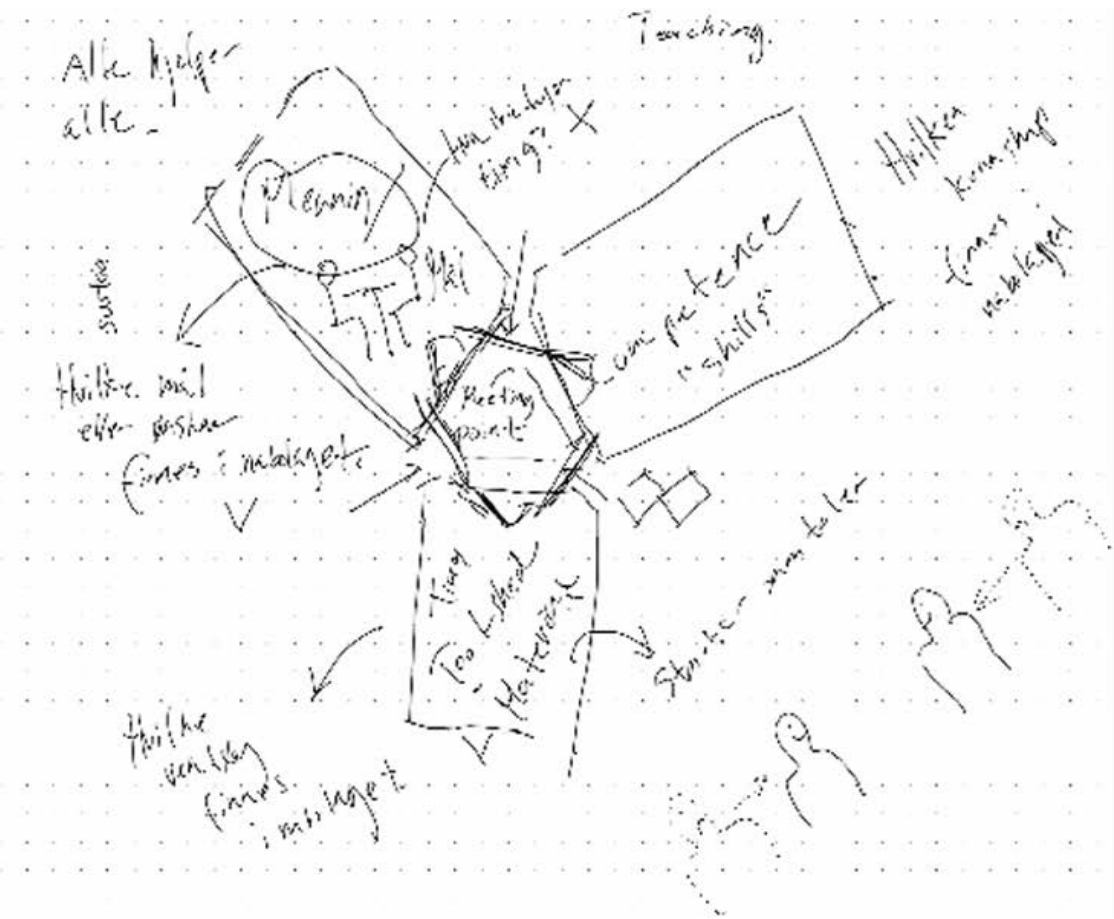 Teaching.
Alle hjelper
alle.
ting?
Planning
Mål
Hvilken
kunnskap
finnes
nabolaget
competence
"skills"
Meeting
point
Hvilke mål
eller ønsker
finnes i nabolaget.
Things
Tool shed
Materials
Hvilke
verktøy
finnes
i nabolaget